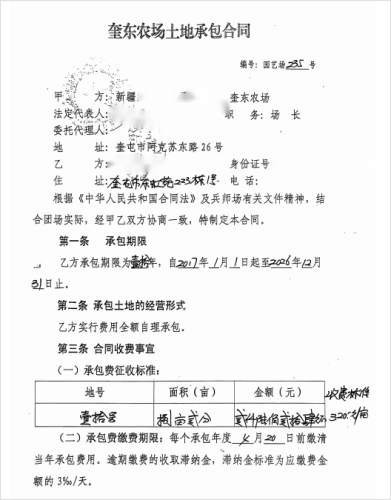 奎东农场土地承包合同
编号：园艺场235号
甲 方：新疆 奎东农场
法定代表人： 职 务：场 长
委托代理人：
地 址：奎屯市阿克苏东路26号
乙 方： 身份证号
住 址：奎屯市 电 话：
根据《中华人民共和国合同法》及兵师场有关文件精神，结
合团场实际，经甲乙双方协商一致，特制定本合同。
第一条 承包期限
乙方承包期限为壹拾年，自2017年1月1日起至2026年12月
31日止。
第二条 承包土地的经营形式
乙方实行费用全额自理承包。
第三条 合同收费事宜
（一）承包费征收标准：
地号 面积（亩） 金额（元） 收费标准
壹拾 捌亩贰分 贰仟陆佰贰拾肆 320元/亩
（二）承包费缴费期限：每个承包年度4月20日前缴清
当年承包费用。逾期缴费的收取滞纳金，滞纳金标准为应缴费金
额的3‰/天。